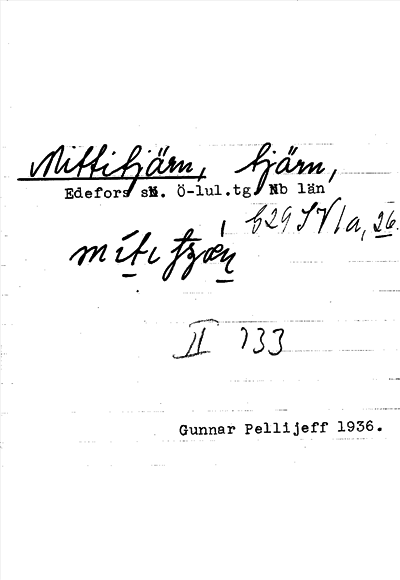 Mittitjärn, tjärn,
Edefors sn. Ö-lul.tg Nb län
629 SV1a, 26.
II 733
Gunnar Pellijeff 1936.